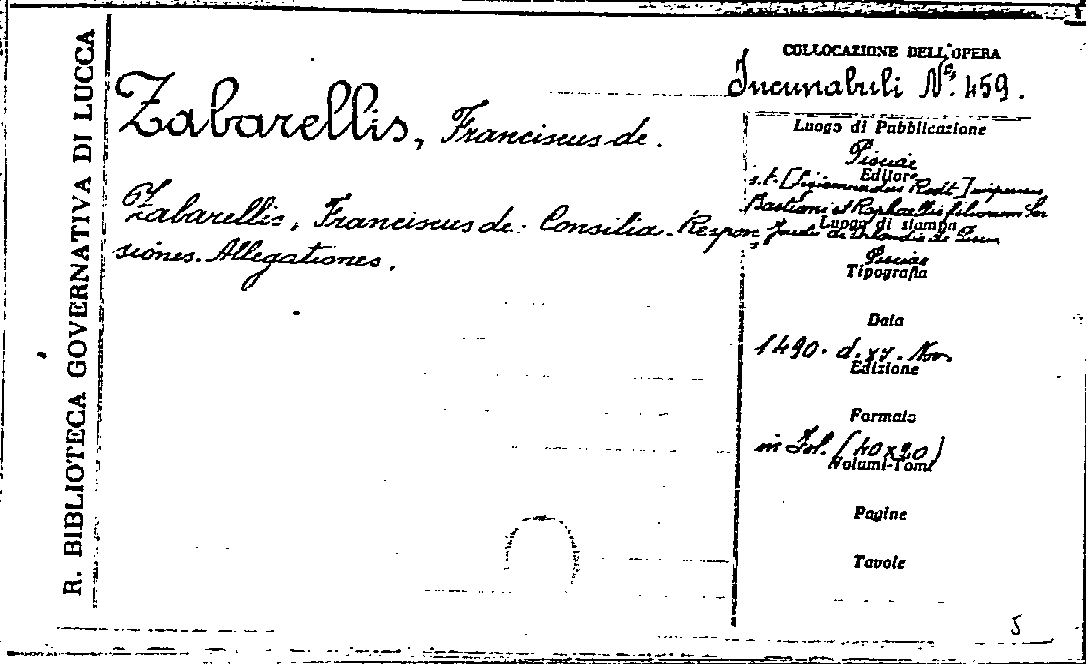 R. BIBLIOTECA GOVERNATIVA DI LUCCA
Zabarellis, Franciscus de.
Zabarellis, Franciscus de. Consilia. Respon
siones. Allegationes.
COLLOCAZIONE DELL'OPERA
Incunabuli Nº. 459.
Luogo di Pubblicazione
Pisciae
Editore
s.t. [Sigismundus Rodt] impensis
Bastiani et Raphaellis filiorum
Luogo di stampa
Jacobi de Orlandis de
Pisciae
Tipografia
Data
1490. d. xx. Nov.
Edizione
Formato
in fol. (40x
Volumi-Tomi
Pagine
Tavole
5